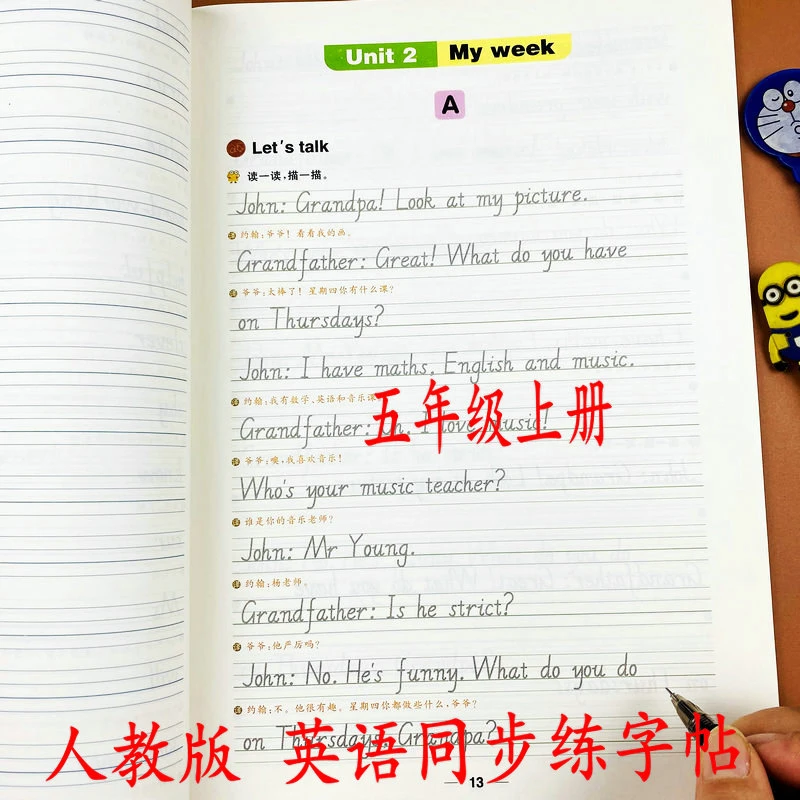 Unit 2 My week
A
Let's talk
读一读,描一描。
John: Grandpa! Look at my picture.
译 约翰:爷爷!看看我的画。
Grandfather: Great! What do you have
译 爷爷:太棒了!星期四你有什么课?
on Thursdays?
John: I have maths, English and music.
译 约翰:我有数学、英语和音乐课
Grandfather: Oh, I love music!
五年级上册
译 爷爷:噢,我喜欢音乐!
Who's your music teacher?
译 谁是你的音乐老师?
John: Mr Young.
译 约翰:杨老师。
Grandfather: Is he strict?
译 爷爷:他严厉吗?
John: No. He's funny. What do you do
译 约翰:不。他很有趣。星期四你都做些什么,爷爷?
on Thursdays, Grandpa?
人教版 英语同步练字帖
13